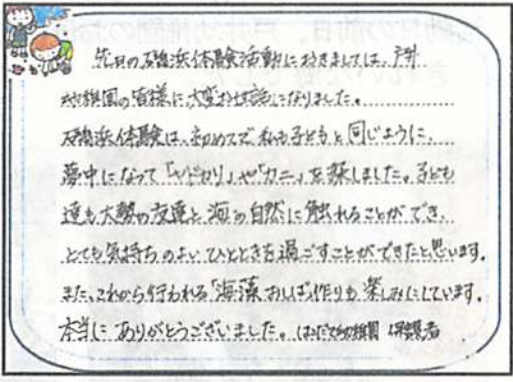 先日の磯浜体験活動におきましては、戸井
幼稚園の皆様に、大変お世話になりました。
磯浜体験は、初めてで私も子どもと同じように、
夢中になって「ヤドカリ」や「カニ」を探しました。子ども
達も大勢の友達と海の自然に触れることができ、
とても気持ちのよいひとときを過ごすことができたと思います。
また、これから行われる「海藻おしば」作りも楽しみにしています。
本当に ありがとうございました。 幼稚園 保護者